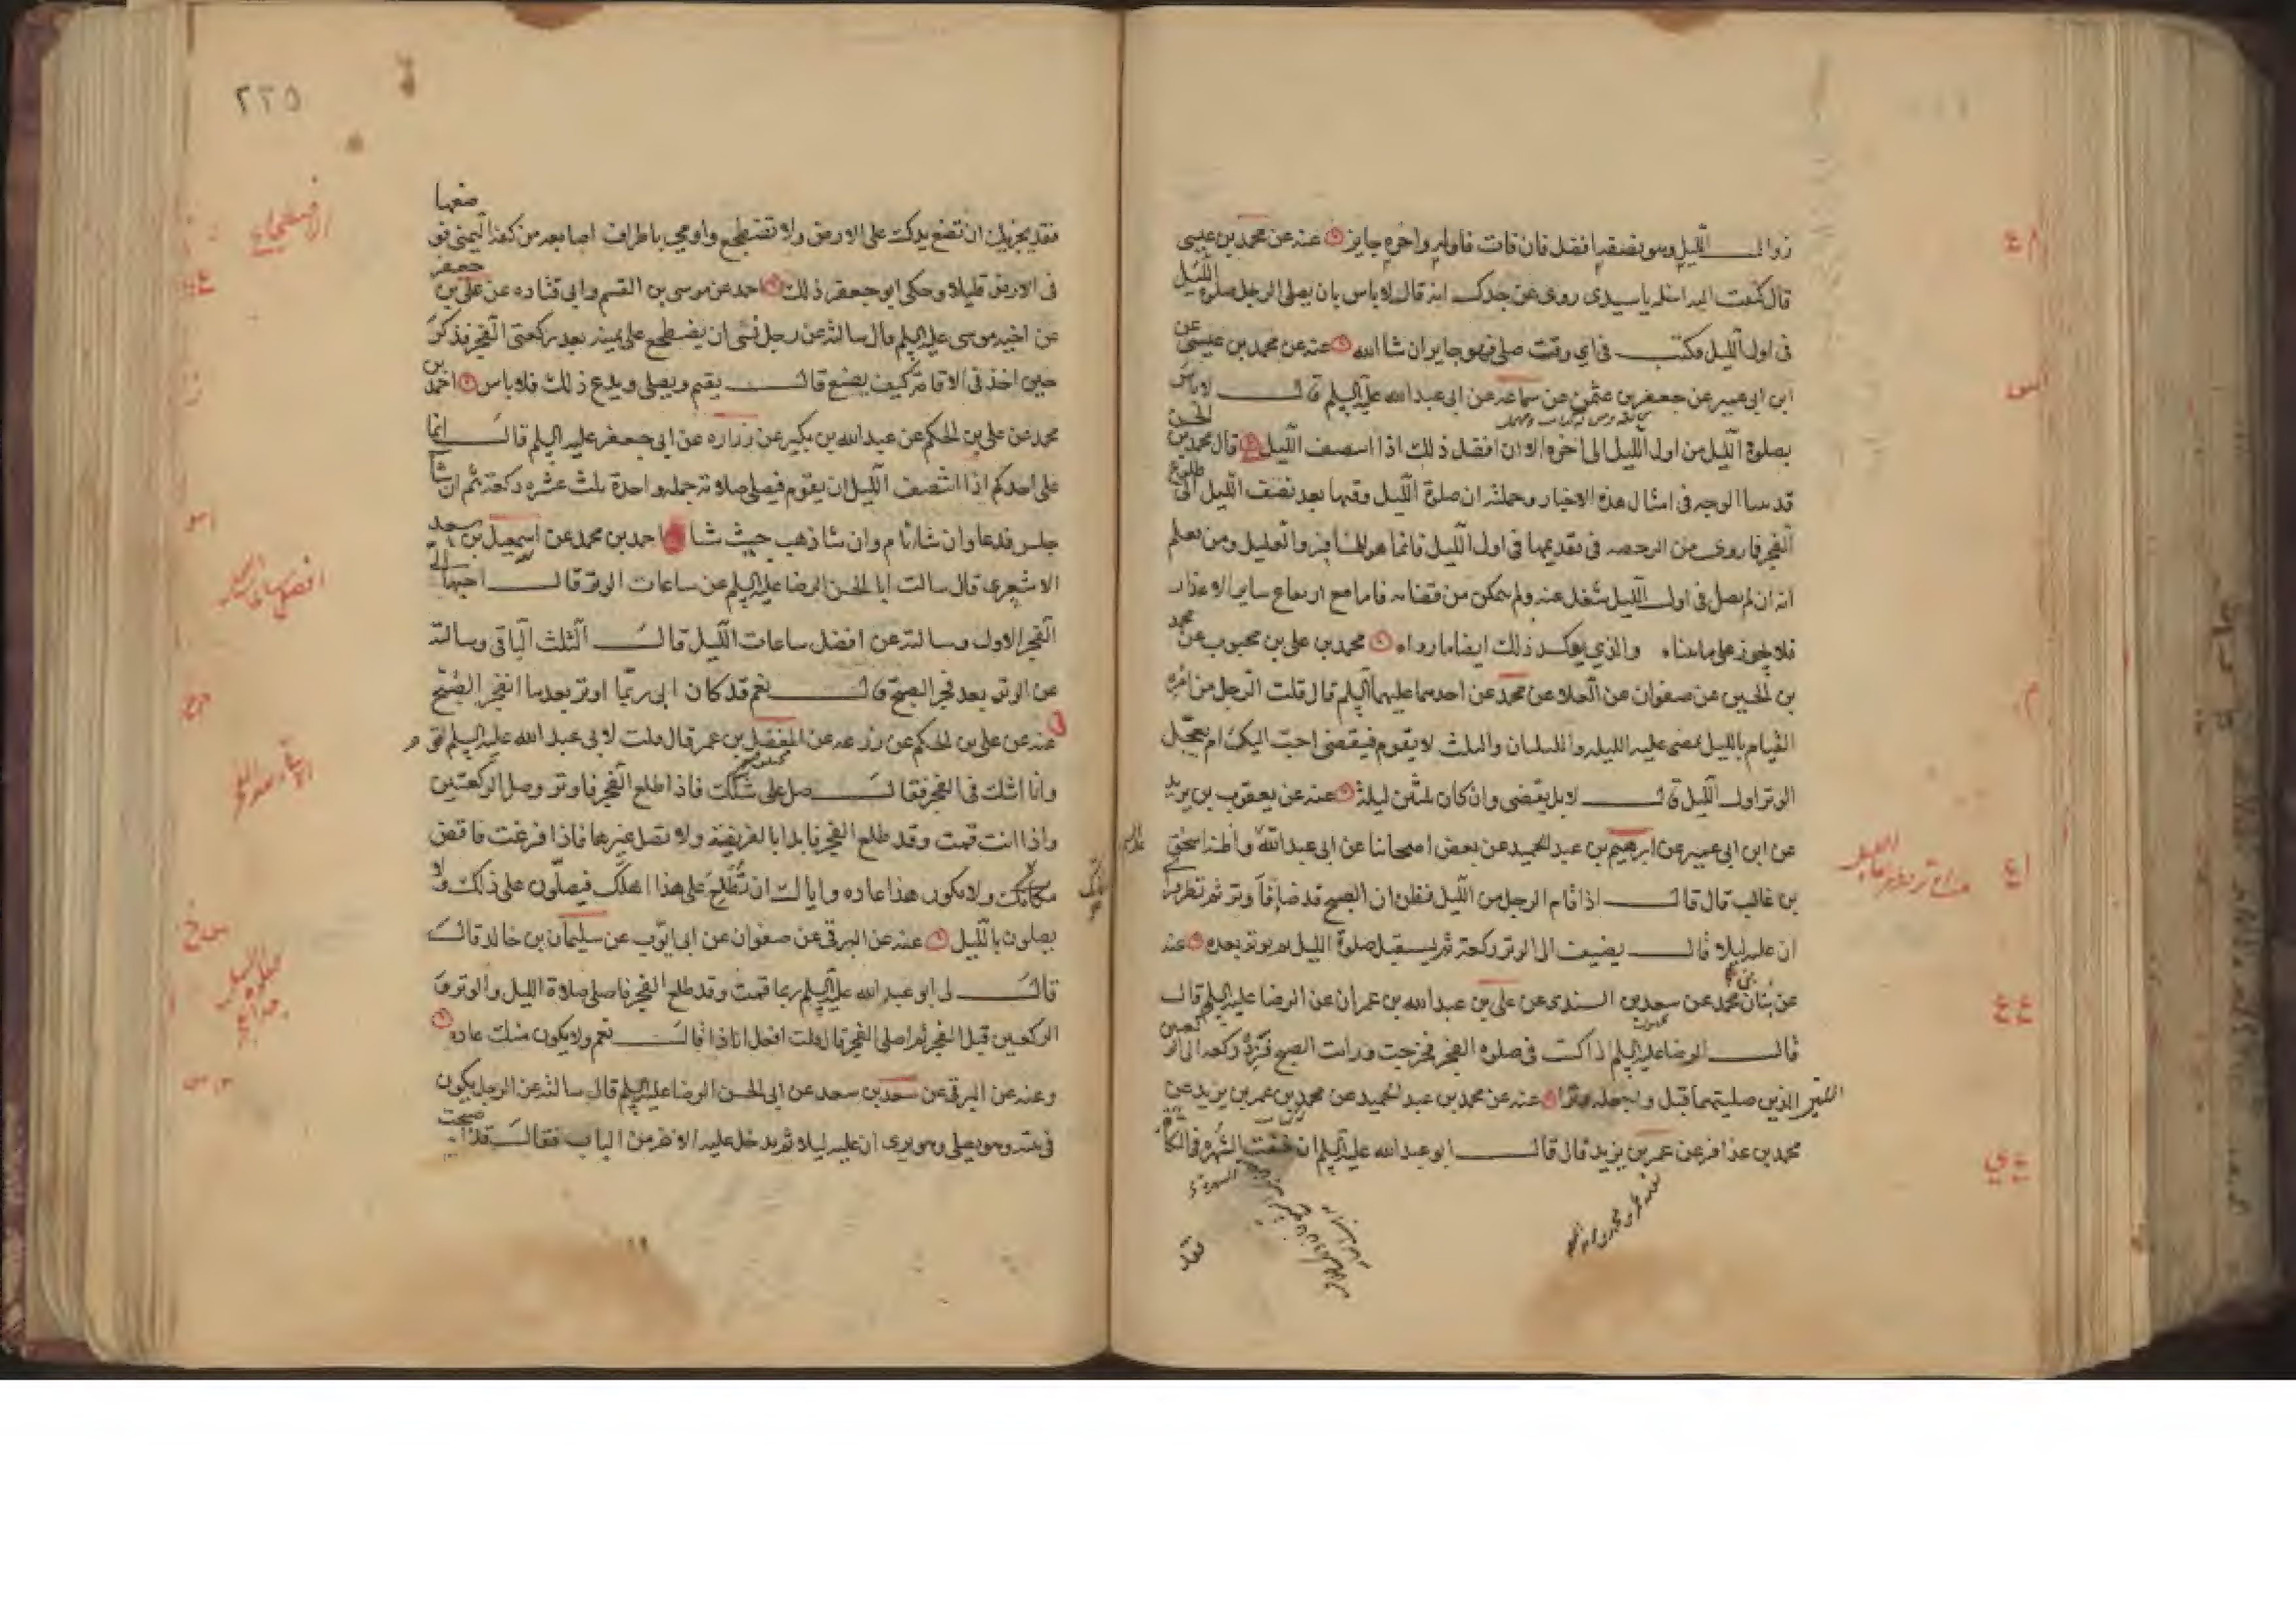 زوال الليل وهو نصفه افضل فان فات فاوله واخره جايز عنه عن محمد بن عيسى
قال كتبت اليه اسئله يا سيدى روى عن جدك انه قال لا باس بان يصلى الرجل صلوة الليل
فى اول الليل فكتب فى اي وقت صلى فهو جايز ان شا الله عنه عن محمد بن عيسى عن
ابن ابى عمير عن جعفر بن عثمن عن سماعة عن ابى عبد الله عليه السلم قال لا باس
بصلوة الليل من اول الليل الى اخره الا ان افضل ذلك اذا انتصف الليل قال محمد بن الحسن
قد بينا الوجه فى امثال هذه الاخبار وجملته ان صلوة الليل وقتها بعد نصف الليل الى طلوع
الفجر فما روى من الرخصه فى تقديمها فى اول الليل فانما هو للمسافر والعليل ومن يعلم
انه ان لم يصل فى اول الليل شغل عنه ولم يتمكن من قضائه فاما مع ارتفاع ساير الاعذار
فلا يجوز على ما بيناه والذي يوكد ذلك ايضا ما رواه محمد بن على بن محبوب عن محمد
بن الحسين عن صفوان عن العلا عن محمد عن احدهما عليهما السلم قال قلت الرجل من امره
القيام بالليل يمضى عليه الليله والليلتان والثلث لا يقوم فيقضى احب اليك ام يعجل
الوتر اول الليل قال لا بل يقضى وان كان ثلثين ليلة عنه عن يعقوب بن يزيد
عن ابن ابى عمير عن ابرهيم بن عبد الحميد عن بعض اصحابنا عن ابى عبد الله واظنه اسحق
بن غالب قال قال اذا قام الرجل من الليل فظن ان الصبح قد ضا فاوتر ثم نظر فراى
ان عليه ليلا قال يضيف الى الوتر ركعة ثم يستقبل صلوة الليل ثم يوتر بعده عنه
عن بنان بن محمد عن سعد بن السندى عن على بن عبد الله بن عمران عن الرضا عليه السلم قال
قال الرضا عليه السلم اذا كنت فى صلوه الفجر فخرجت ورايت الصبح فزد ركعه الى الركعتين
اللتين صليتهما قبل واجعله وترا عنه عن محمد بن عبد الحميد عن محمد بن عمر بن يزيد عن
محمد بن عذافر عن عمر بن يزيد قال قال ابو عبد الله عليه السلم ان خفت الشهره فى التكاة
٢٢٥
فقد يجزيك ان تضع يدك على الارض ولا تضطجع واومى باطراف اصابعه من كفه اليمنى فوضعها
فى الارض قليلا وحكى ابو جعفر ذلك احمد عن موسى بن القسم وابى قتاده عن على بن جعفر
عن اخيه موسى عليه السلم قال سالته عن رجل نسى ان يضطجع على يمينه بعد ركعتى الفجر فذكر
حين اخذ فى الاقامة كيف يصنع قال يقيم ويصلى ويدع ذلك فلا باس احمد بن
محمد عن على بن الحكم عن عبد الله بن بكير عن زراره عن ابى جعفر عليه السلم قال انما
على احدكم اذا انتصف الليل ان يقوم فيصلى صلاته جمله واحدة ثلث عشره ركعة ثم ان شا
جلس فدعا وان شا نام وان شا ذهب حيث شا احمد بن محمد عن اسمعيل بن سعد
الاشعرى قال سالت ابا الحسن الرضا عليه السلم عن ساعات الوتر قال احبها الى
الفجر الاول وسالته عن افضل ساعات الليل قال الثلث الباقى وسالته
عن الوتر بعد فجر الصبح قال نعم قد كان ابى ربما اوتر بعد ما انفجر الصبح
عنه عن على بن الحكم عن زرعه عن المفضل بن عمر قال قلت لابى عبد الله عليه السلم اقوم
وانا اشك فى الفجر فقال صل على شكك فاذا طلع الفجر فاوتر وصل الركعتين
واذا انت قمت وقد طلع الفجر فابدا بالفريضة ولا تصل غيرها فاذا فرغت فاقض
مكانك ولا يكون هذا عاده واياك ان تطلع على هذا اهلك فيصلون على ذلك ولا
يصلون بالليل عنه عن البرقى عن صفوان عن ابى ايوب عن سليمان بن خالد قال
قال لى ابو عبد الله عليه السلم ربما قمت وقد طلع الفجر فاصلى صلاة الليل والوتر و
الركعتين قبل الفجر ثم اصلى الفجر قال قلت افعل انا ذا قال نعم ولا يكون منك عاده
وعنه عن البرقى عن سعد بن سعد عن ابى الحسن الرضا عليه السلم قال سالته عن الرجل يكون
فى بيته وهو يصلى وهو يرى ان عليه ليلا ثم يدخل عليه الاخر من الباب فقال قد اصبحت